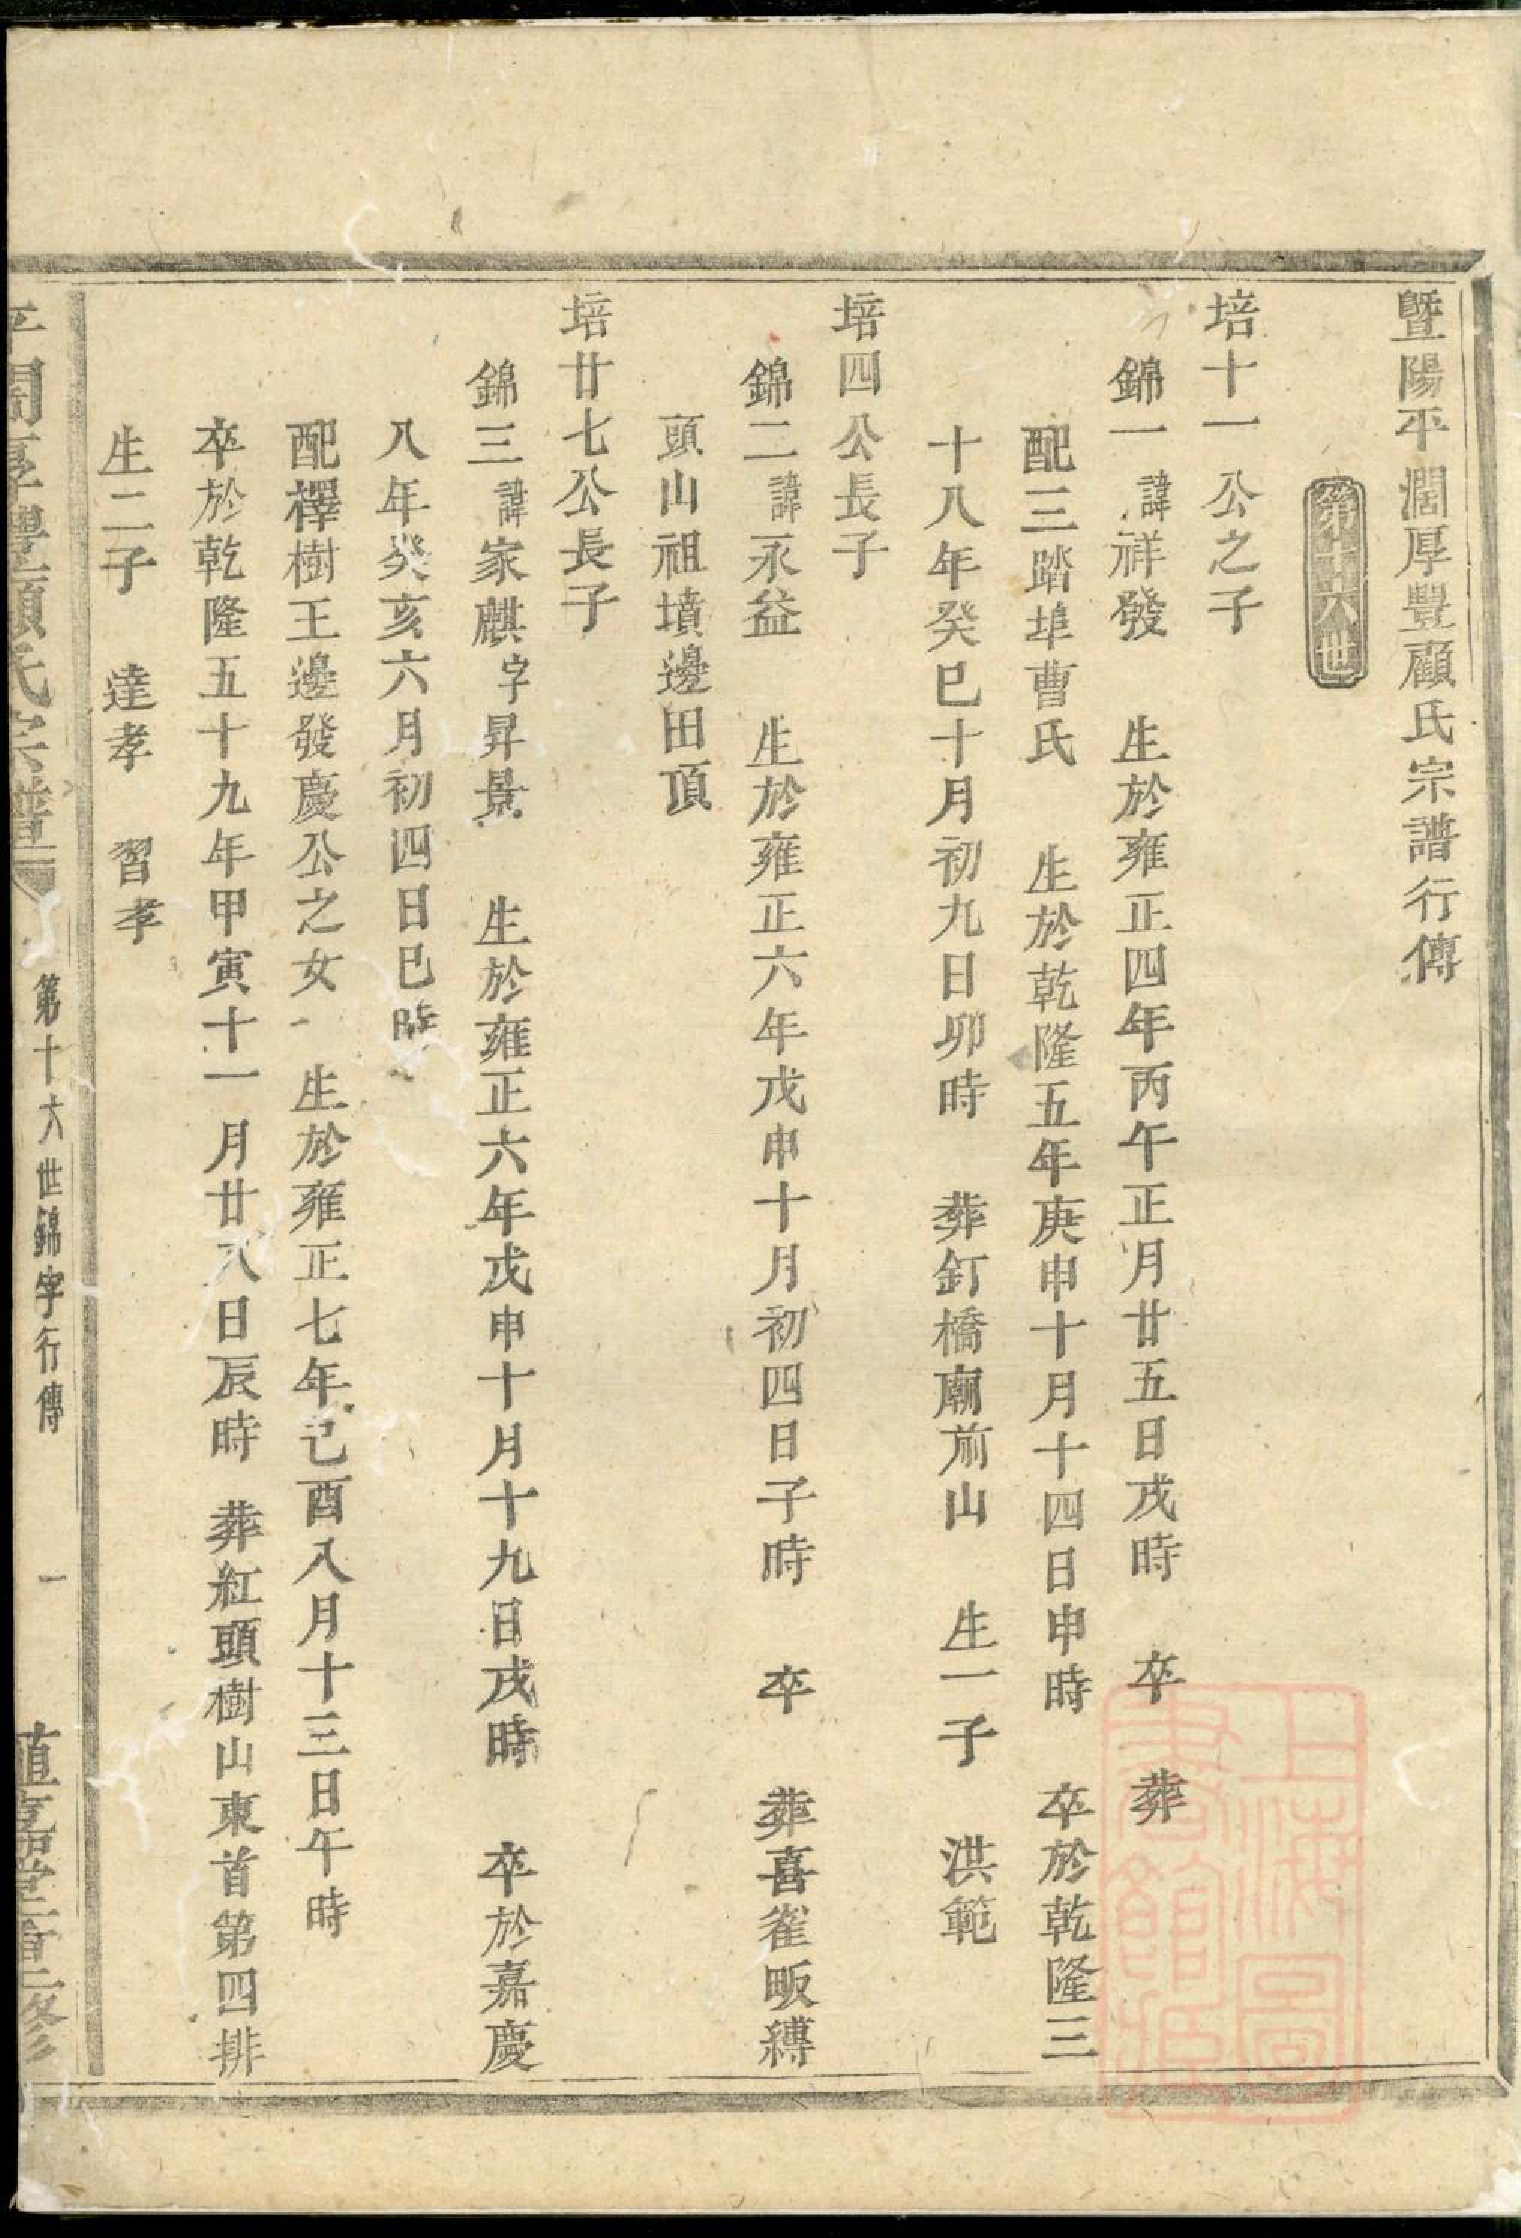 暨陽平濶厚豐顧氏宗譜行傳
第十六世
培十一公之子
錦一諱祥發　生於雍正四年丙午正月廿五日戌時　卒　葬
配三踏埠曹氏　生於乾隆五年庚申十月十四日申時　卒於乾隆三
十八年癸巳十月初九日卯時　葬釘橋廟前山　生一子　洪範
培四公長子
錦二諱永益　生於雍正六年戊申十月初四日子時　卒　葬喜雀畈縛
頭山祖墳邊田頂
培廿七公長子
錦三諱家麒字昇景　生於雍正六年戊申十月十九日戌時　卒於嘉慶
八年癸亥六月初四日巳時
配檡樹王邊發慶公之女　生於雍正七年己酉八月十三日午時
卒於乾隆五十九年甲寅十一月廿八日辰時　葬紅頭樹山東首第四排
生二子　達孝　習孝
平濶厚豐顧氏宗譜　第十六世錦字行傳　一　重修
上海圖書館藏